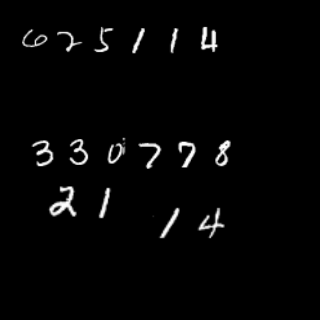 625114
330778
21 14